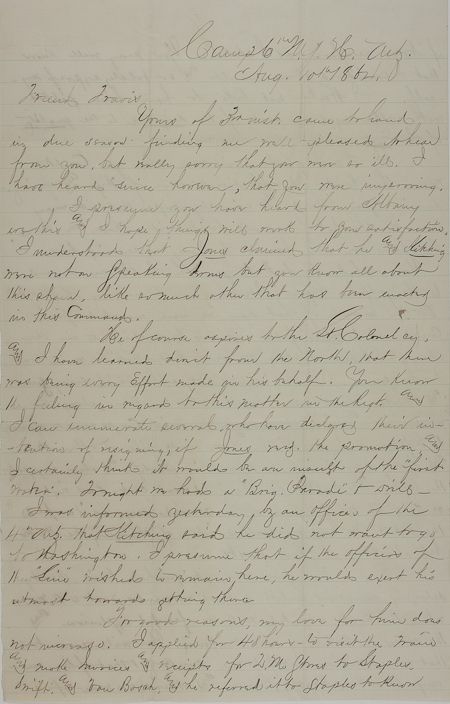 Camp 6th N.Y. H. Art.
Aug. 10th 1864
Friend Travis
Yours of the inst came to hand
in due season finding me well pleased to hear
from you, but really sorry that you were so ill. I
have heard since however, that you were improving.
I presume you have heard from Albany
ere this and I hope things will work to your satisfaction.
I understood that Jones claimed that he and Kitching
were not on speaking terms but you know all about
this affair, like so much other that has been enacted
in this Command.
He of course aspires to the Lt. Colonelcy,
and I have learned direct from the North, that there
was being every Effort made in his behalf. You know
the feeling in regard to this matter in the Regt. and
I can enumerate several, who have declared their in-
tention of resigning, if Jones recd. the promotion, and
I certainly think it would be an insult of the first
water. Tonight we had a "Brig. Parade" & drill
I was informed yesterday, by an officer of the
4th Art. that Kitching said he did not want to go
to Washington. I presume that if the officers of
the "Line" wished to remain here, he would exert his
utmost towards getting there
For good reasons, my love for him does
not increase. I applied for 48 hours to visit the Train
and make Invoices and receipts for Staples
Swift, and Van Bosch, and he referred it to Staples to know